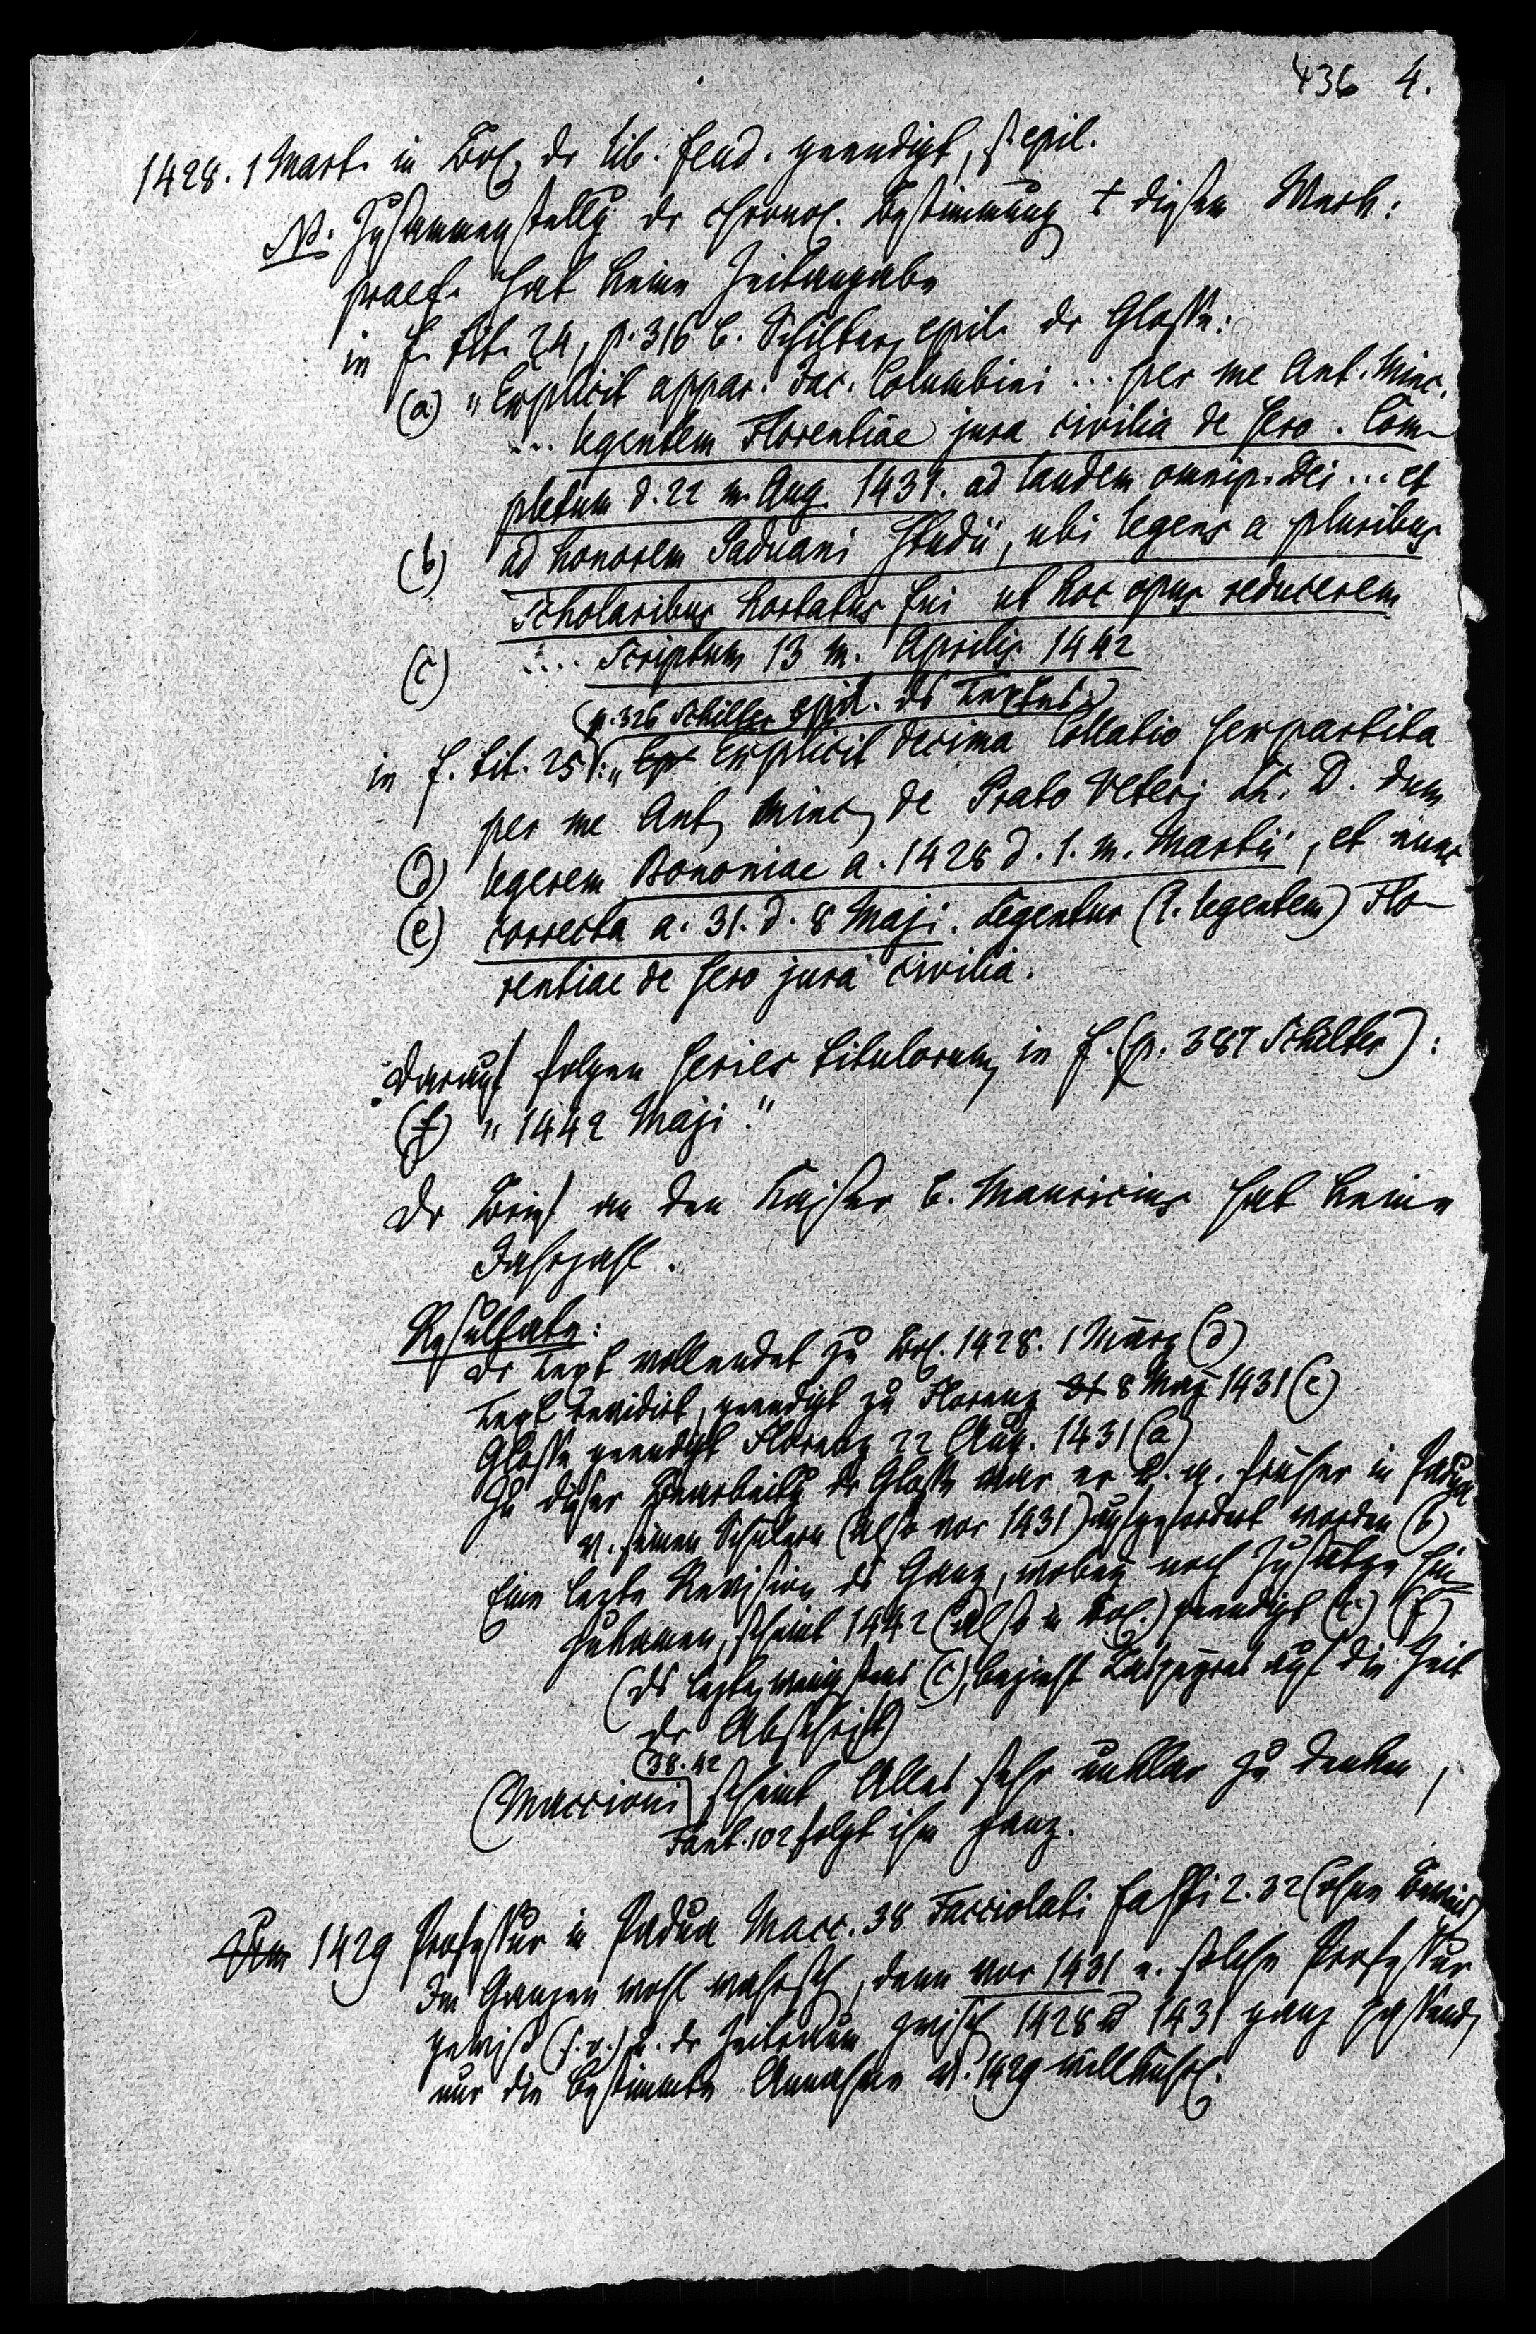 436 4.
1428. 1 Mart. in Bol. der lib. feud. geendigt, s. epil.
NB. Zusammenstellg der chronol. Bestimmung † diesem Werk:
praef. hat keine Zeitangabe
in f. tit. 24, p. 316 b. Schilter, epil. der Glosse:
(a) „Explicit appar. Jac. Columbini ... per me Ant. Minc.
... legentem Florentiae jura civilia de sero. Com-
pletum d. 22 m. Aug. 1431. ad laudem omnip. Dei ... et
(b) ad honorem Paduani Studii, ubi legens a pluribus
Scholaribus hortatus fui ut hoc opus reducerem
(c) .... Scriptum 13 m. Aprilis 1442
(p. 326 Schilter epil. des Textes)
in f. tit. 25: „Explicit decima Collatio sexpartita
per me Ant. Minc. de Prato Veteri D. dum
(d) legerem Bononiae a. 1428 d. 1. m. Martii, et nunc
(e) correcta a. 31. d. 8 Maji. Legentur (l. legentem) Flo-
rentiae de sero jura civilia.
Darauf folgen series titulorum, in f. (p. 387 Schilter):
(f) „1442 Maji."
Der Brief an den Kaiser b. Mauricius hat keine
Jahrzahl.
Resultate:
Der Text vollendet zu Bol. 1428. 1 März (d)
Text revidirt, geendigt zu Florenz 8 May 1431 (e)
Glosse geendigt Florenz 22 Aug. 1431 (a)
Zu dieser Bearbeitg der Glosse war er früher in Padua
v. seinen Schülern (also vor 1431) aufgefordert worden (b)
Eine lezte Revision des Ganz, wobey noch Zusätze hin-
zukamen, scheint 1442 (also in Bol.) geendigt (c) (f)
(das lezte, wenigstens (c), bezieht Laspeyres auf die Zeit
der Abschrift)
38. 42
(Maccioni scheint Alles sehr unklar zu denken,
Fant. 102 folgt ihm ganz.
Um 1429 Professur in Padua Macc. 38 Facciolati fasti 2. 32 (ohne Beweis)
Im Ganzen wohl wahrsch, denn vor 1431 e. solche Professur
gewiß (s. o.) u. der Zeitraum zwisch 1428 u 1431 ganz passend,
nur die bestimmte Annahme v. 1429 willkührl.